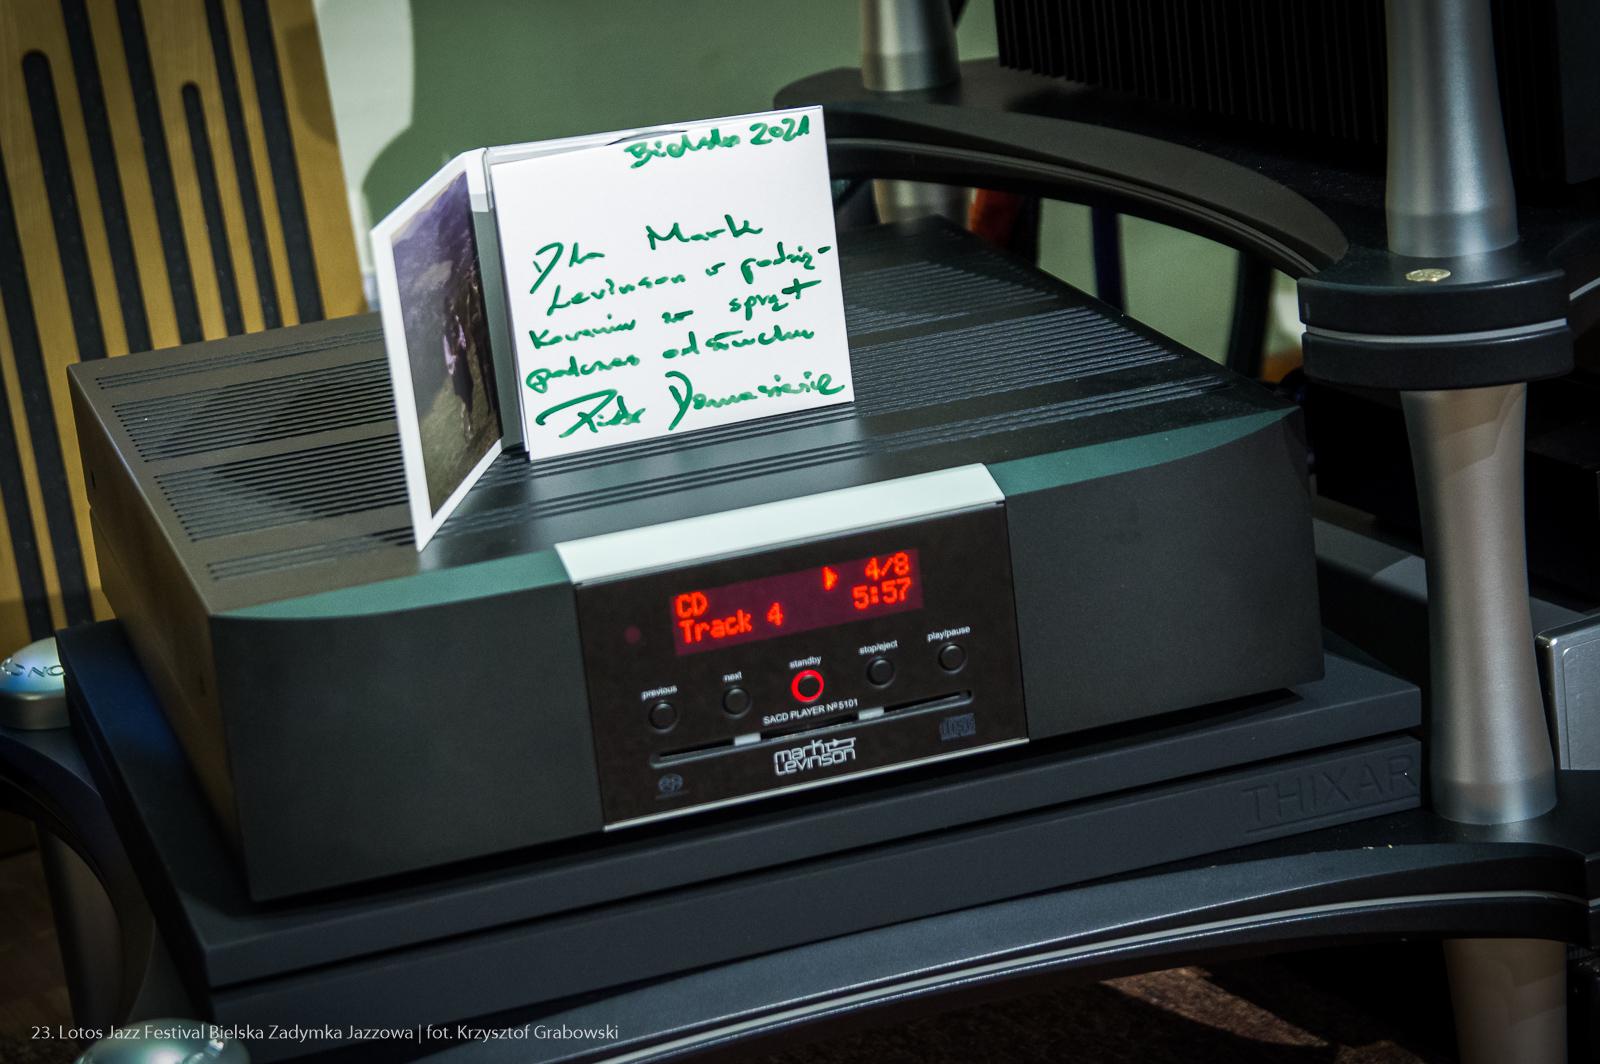 Bielsko 2021
Dla Mark
Levinson w podzię-
kowaniu za sprzęt
podczas odsłuchu
Piotr Damasiewicz
CD
4/8
Track 4
5:57
previous
next
standby
stop/eject
play/pause
SACD PLAYER Nº5101
mark
Levinson
THIXAR
23. Lotos Jazz Festival Bielska Zadymka Jazzowa | fot. Krzysztof Grabowski